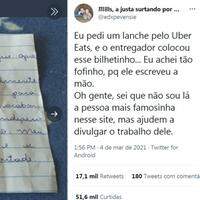 Mills, a justa surtando por ...
@edxpevensie
Eu pedi um lanche pelo Uber
Eats, e o entregador colocou
esse bilhetinho... Eu achei tão
fofinho, pq ele escreveu a
mão.
Oh gente, sei que não sou lá
a pessoa mais famosinha
nesse site, mas ajudem a
divulgar o trabalho dele.
1:56 PM · 4 de mar de 2021 · Twitter for
Android
17,1 mil Retweets 180 Tweets com comentá
51,6 mil Curtidas